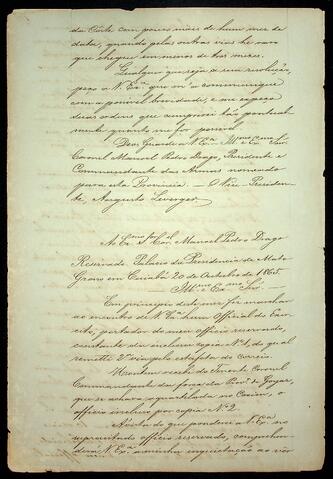 da Côrte com pouco mais de hum mez de
data, quando pelas outras vias he raro
que chegue em menos de tres mezes.
Qualquer que seja a sua resolução,
peço a V. Exª que m'a communique
com a possivel brevidade, e me expeça
suas ordens que cumprirei tão pontual
mente quanto me for possivel.
Deos Guarde a V. Exª Illmo e Exmo Snr.
Coronel Manoel Pedro Drago, Presidente e
Commandante das Armas nomeado
para esta Provincia. — O Vice-Presiden-
te Augusto Leverger.
Ao Exmo Sr. Coronel Manoel Pedro Drago
Reservado Palacio da Presidencia de Mato
Grosso em Cuiabá 20 de Outubro de 1865.
Illmo e Exmo Snr. —
Em principio deste mez fiz marchar
ao encontro de V. Exª hum Official do Exer-
cito, portador do meu officio reservado,
constante da inclusa copia Nº 1, do qual
remetti 2ª via pela estafeta do correio.
Hontem recebi do Tenente Coronel
Commandante da força da Provª de Goyaz,
que se achava aquartelada no Coxim, o
officio incluso por copia Nº 2.
Á vista do que ponderei a V. Exª no
supracitado officio reservado, comprehen-
derá V. Exª a minha inquietação ao ver